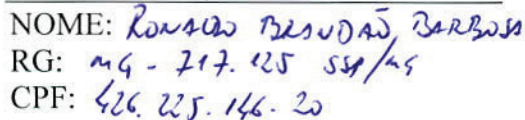 NOME: RONALDO BRANDÃO BARBOSA
RG: MG - 717.125 SSP/MG
CPF: 426.225.146-20